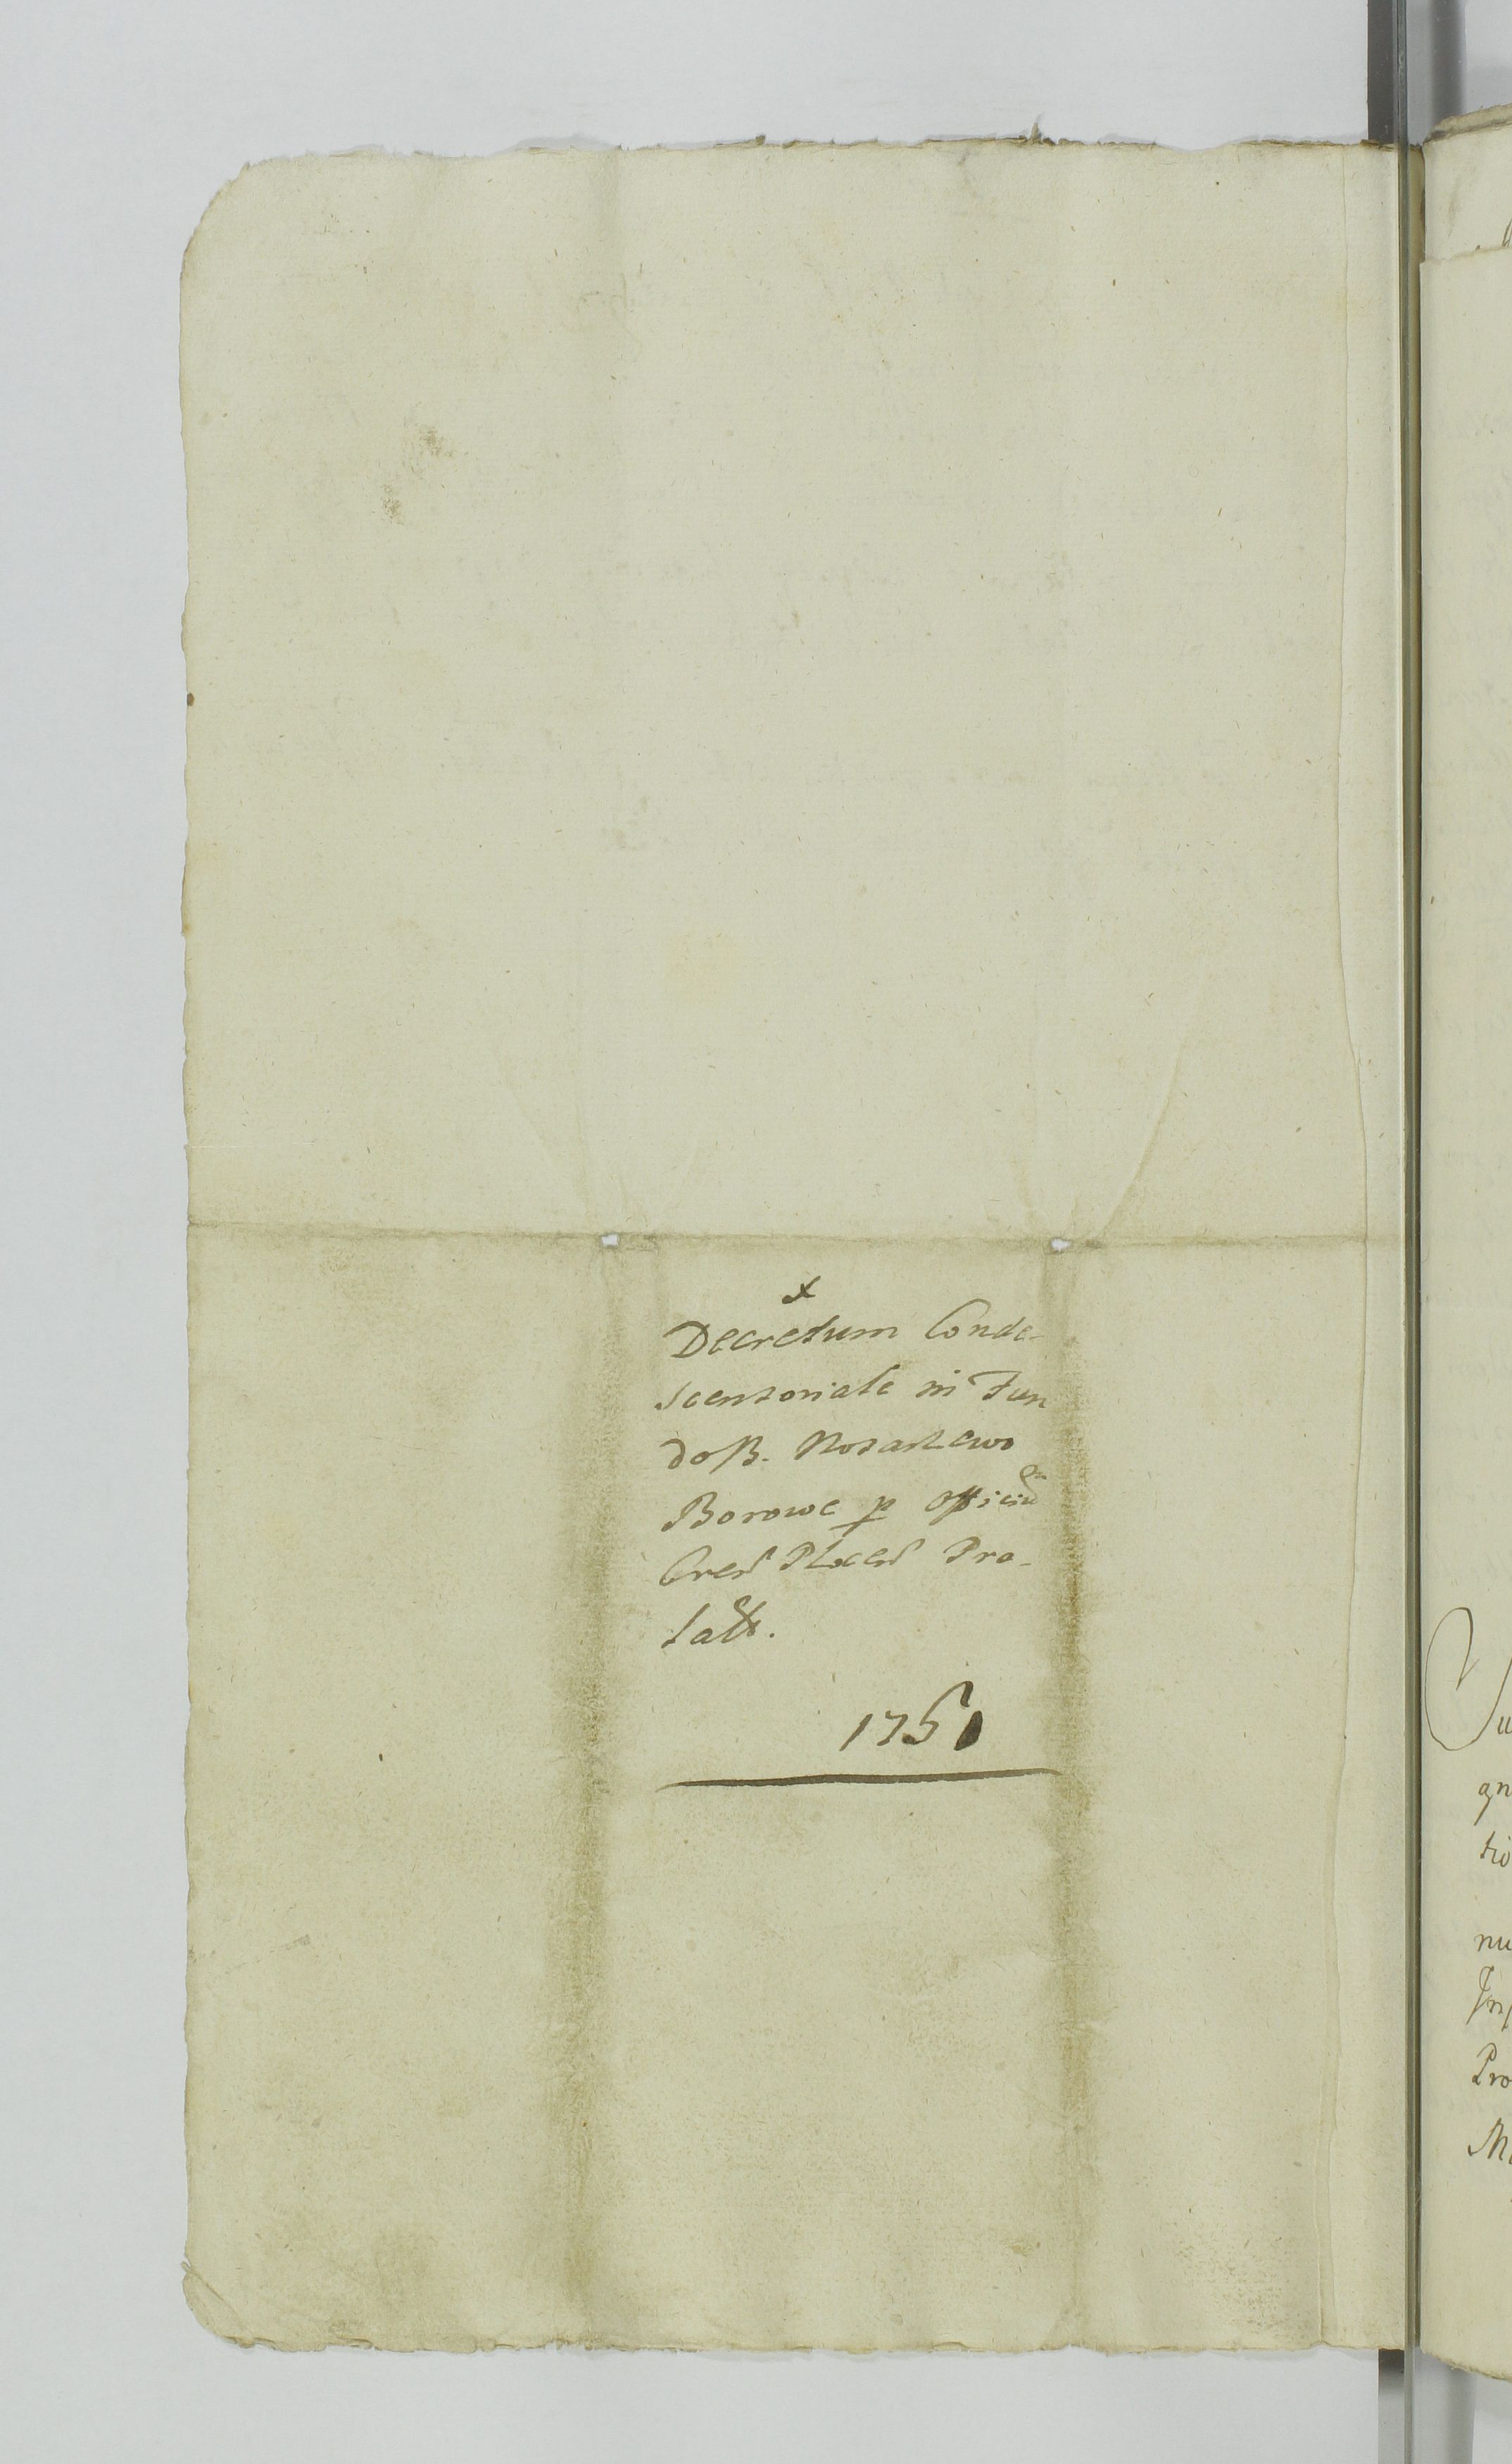 x
Decretum Conde-
scensoriale in Fun
do B. Nosarzewo
Borowe p Officiu
Cres Plocen Pro-
latt.
1751